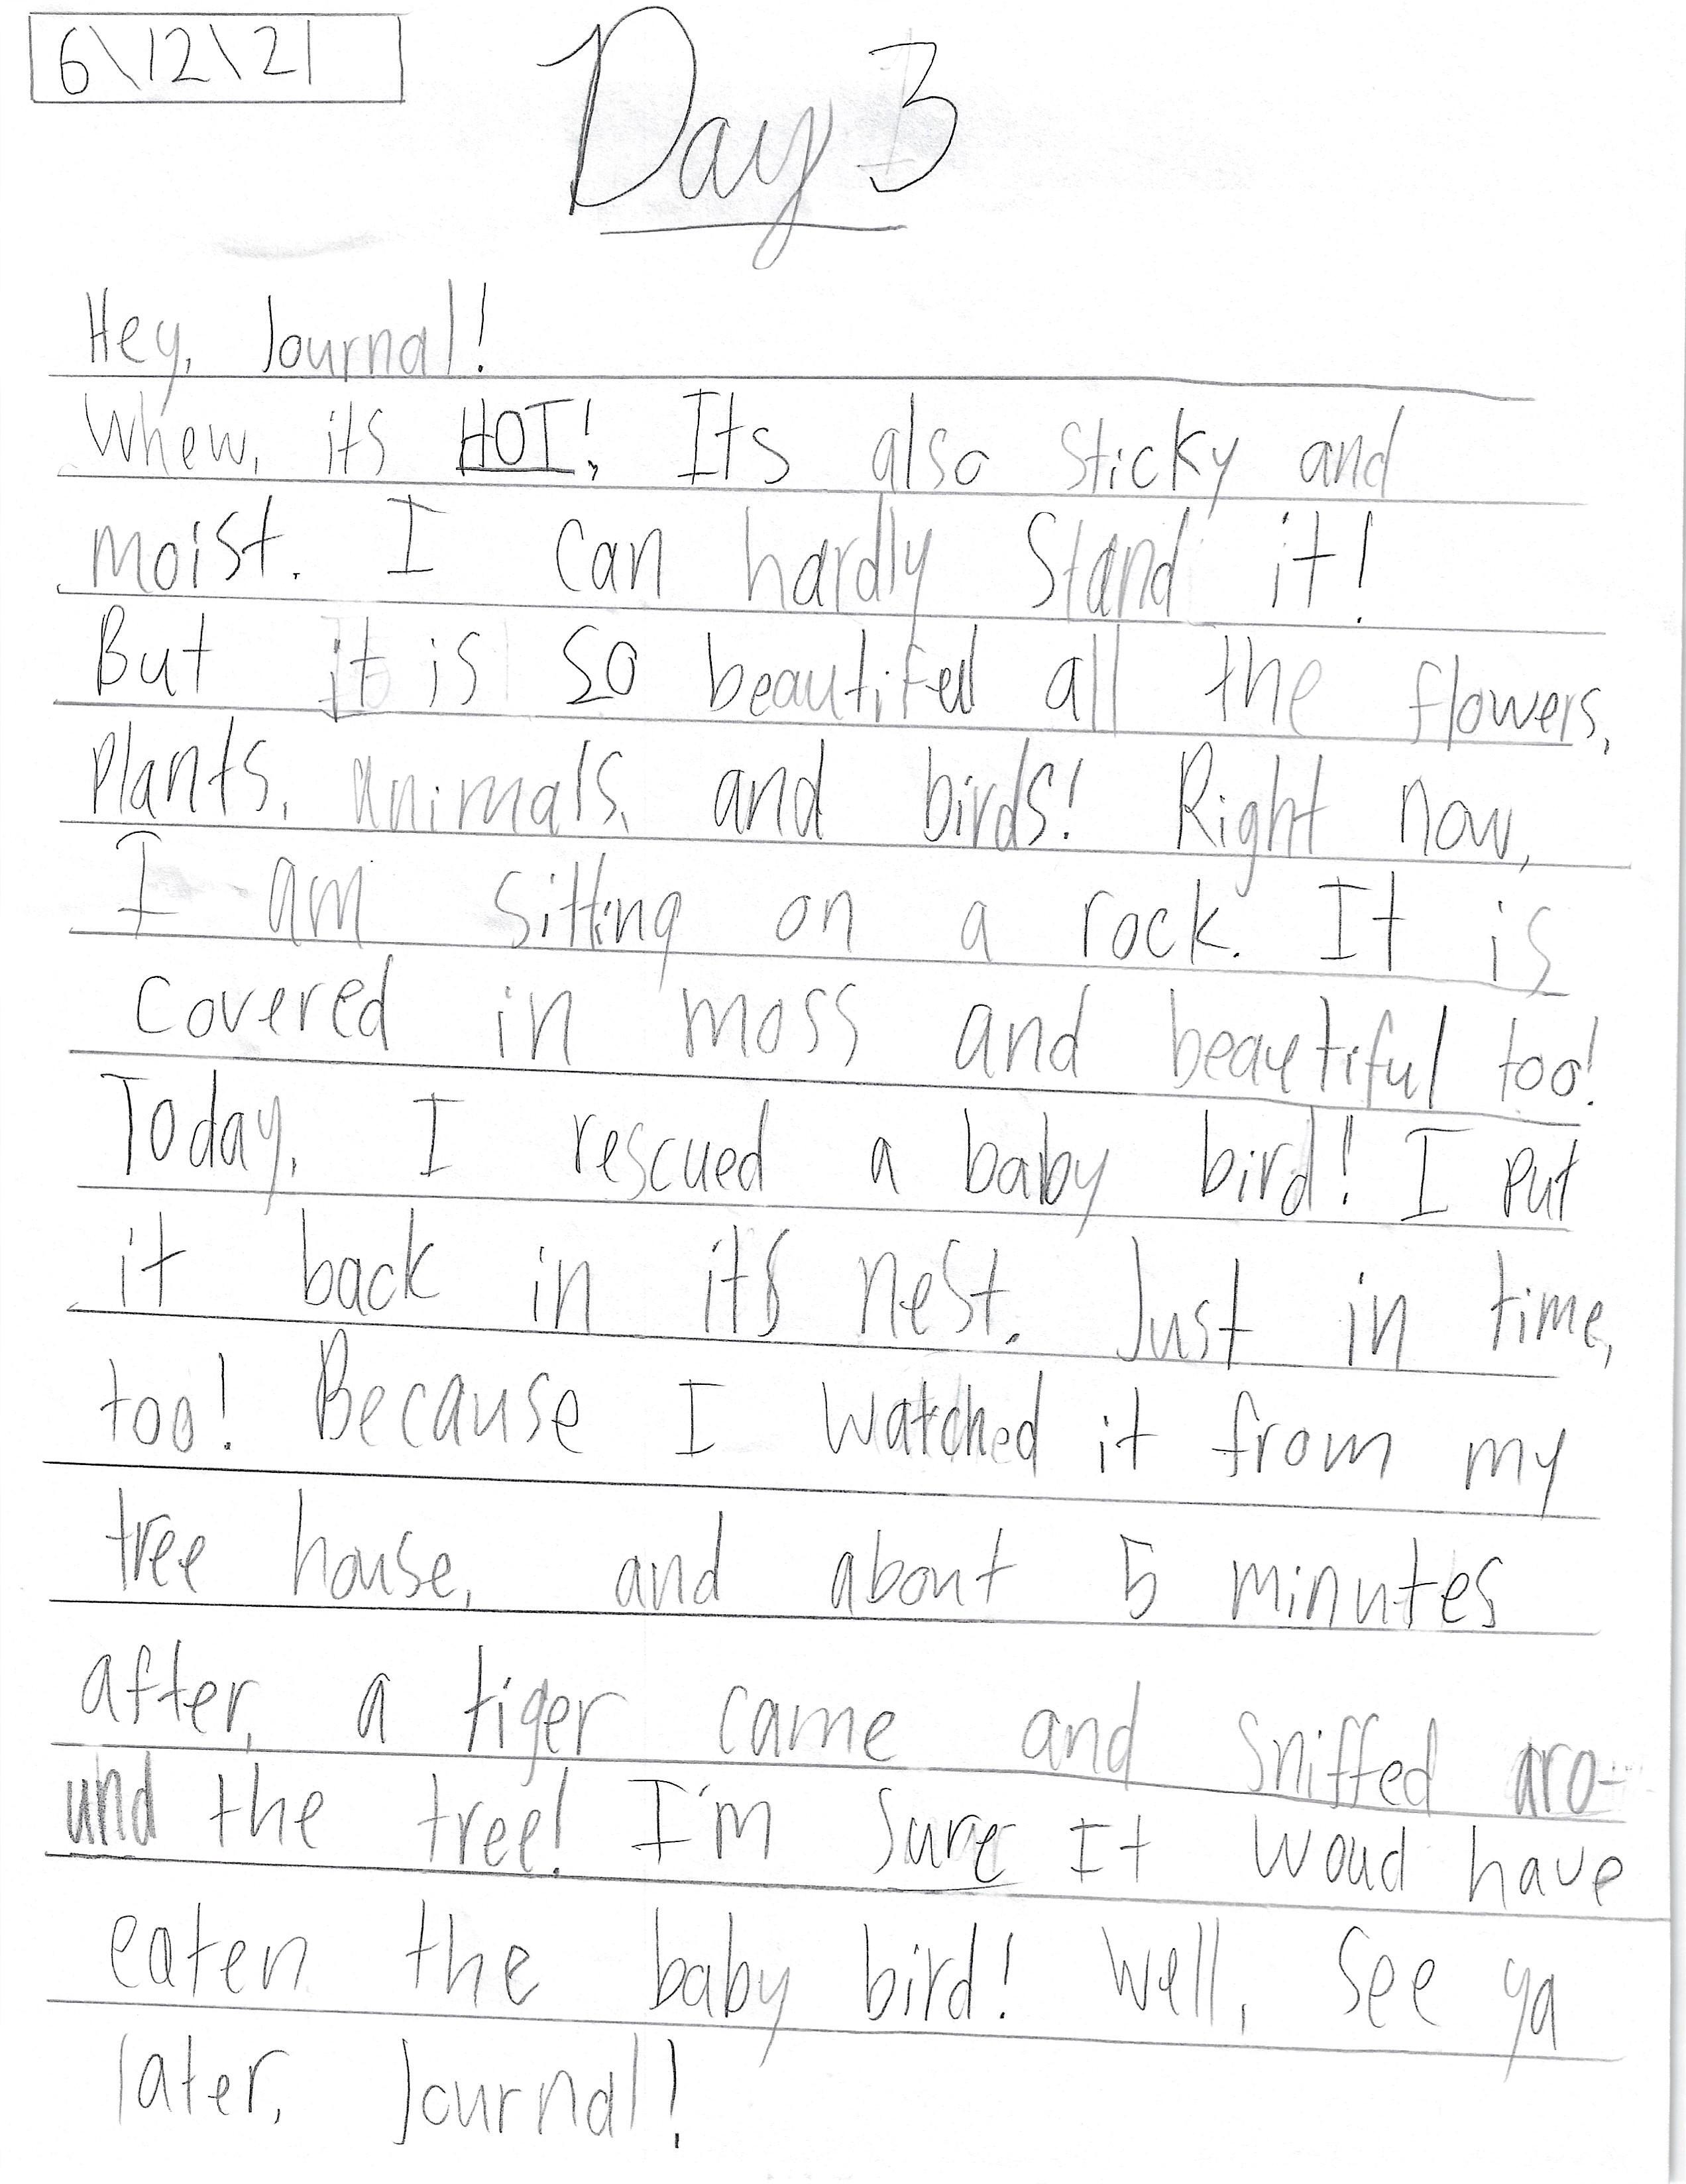 6\12\21
Day 3
Hey, Journal!
Whew, its HOT! Its also sticky and
moist. I can hardly stand it!
But it is so beautiful all the flowers,
plants, animals, and birds! Right now,
I am sitting on a rock. It is
covered in moss and beautiful too!
Today, I rescued a baby bird! I put
it back in its nest. Just in time,
too! Because I watched it from my
tree house, and about 5 minutes
after, a tiger came and sniffed aro-
und the tree! I'm sure It woud have
eaten the baby bird! Well, see ya
later, Journal!